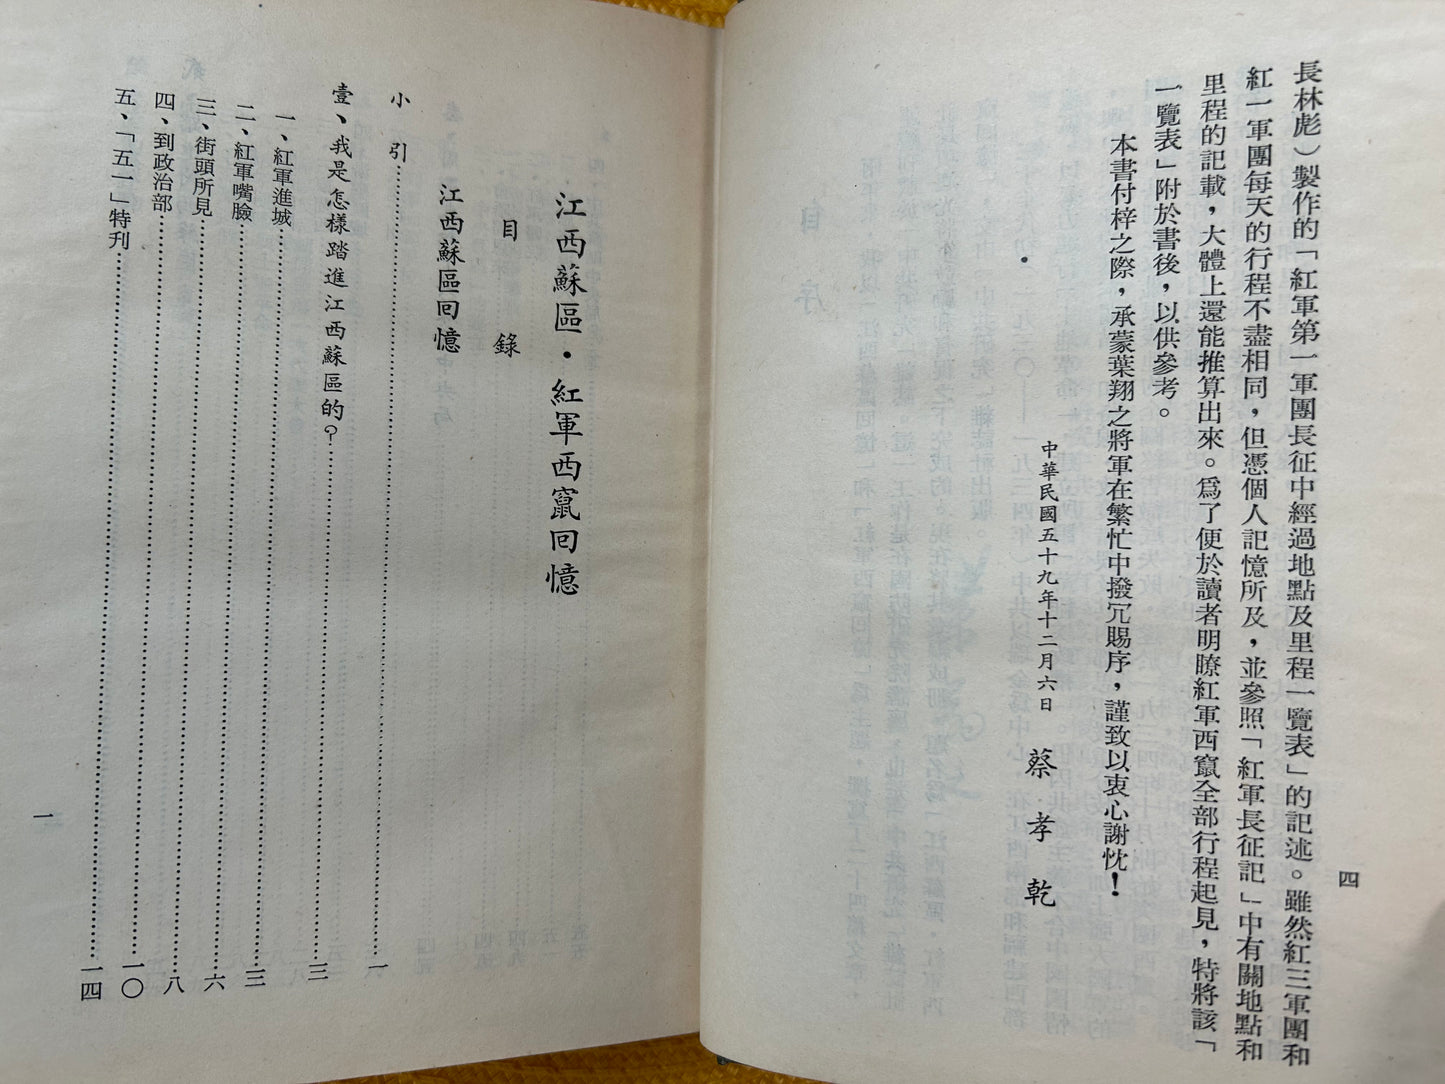 長林彪）製作的「紅軍第一軍團長征中經過地點及里程一覽表」的記述。雖然紅三軍團和
紅一軍團每天的行程不盡相同，但憑個人記憶所及，並參照「紅軍長征記」中有關地點和
里程的記載，大體上還能推算出來。爲了便於讀者明瞭紅軍西竄全部行程起見，特將該「
一覽表」附於書後，以供參考。
本書付梓之際，承蒙葉翔之將軍在繁忙中撥冗賜序，謹致以衷心謝忱！
中華民國五十九年十二月六日　蔡孝乾
四
江西蘇區・紅軍西竄回憶
目錄
江西蘇區回憶
小引……一
壹、我是怎樣踏進江西蘇區的？……三
一、紅軍進城……三
二、紅軍嘴臉……六
三、街頭所見……八
四、到政治部……一〇
五、「五一」特刊……一四
一